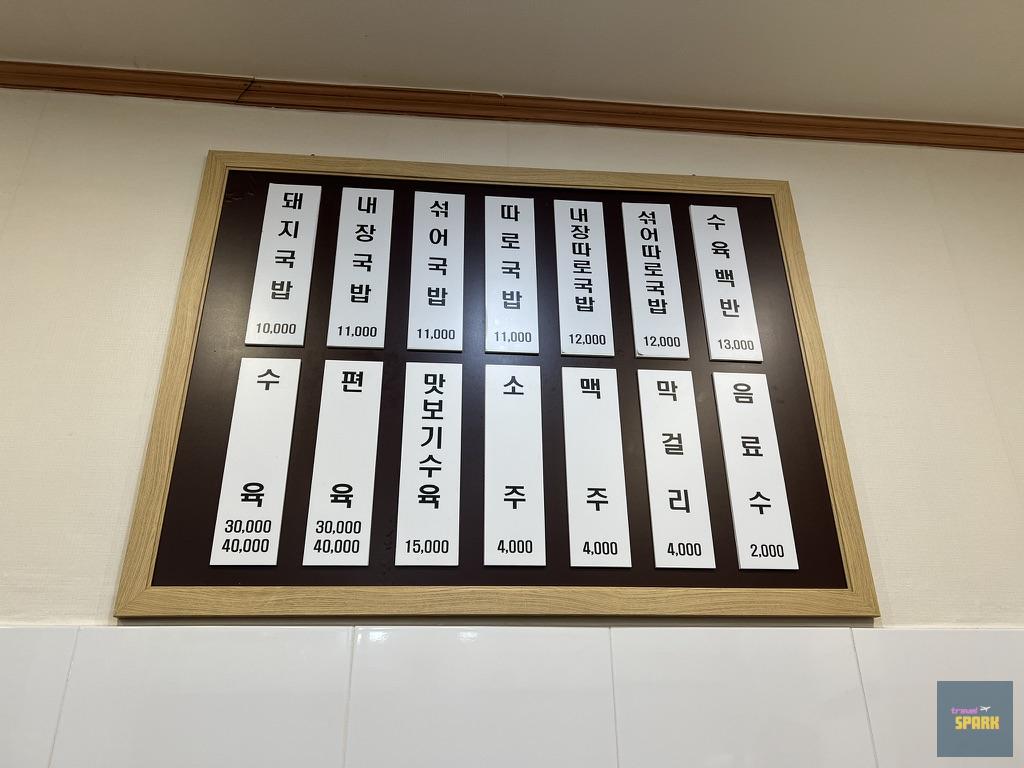 돼지국밥
10,000
내장국밥
11,000
섞어국밥
11,000
따로국밥
11,000
내장따로국밥
12,000
섞어따로국밥
12,000
수육백반
13,000
수육
30,000
40,000
편육
30,000
40,000
맛보기수육
15,000
소주
4,000
맥주
4,000
막걸리
4,000
음료수
2,000
travel
SPARK